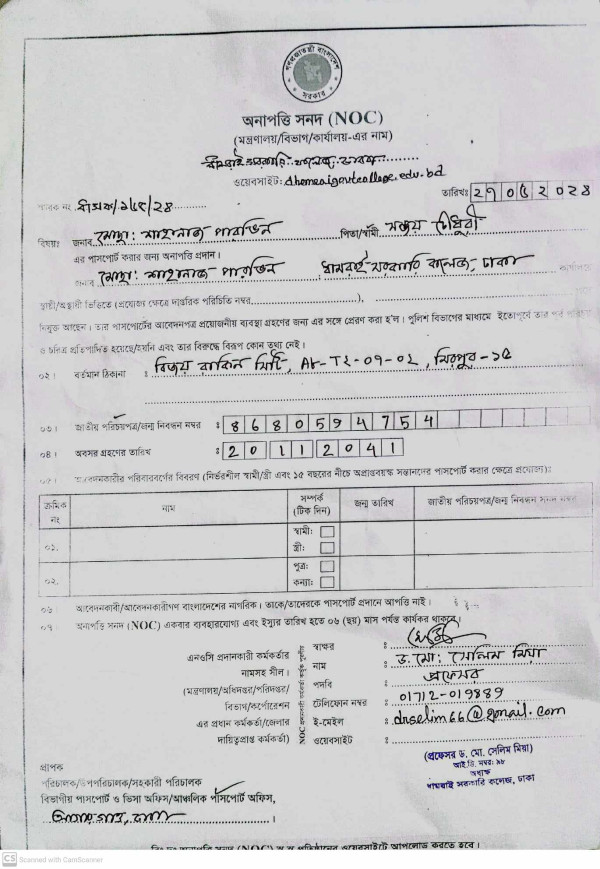 গণপ্রজাতন্ত্রী বাংলাদেশ
সরকার
অনাপত্তি সনদ (NOC)
(মন্ত্রণালয়/বিভাগ/কার্যালয়-এর নাম)
ধামরাই সরকারি কলেজ, ঢাকা
ওয়েবসাইট: dhamraigovtcollege.edu.bd
স্মারক নং তারিখঃ 27052024
বিষয়ঃ জনাব মোছা: শাহানাজ পারভিন পিতা/স্বামী চৌধুরী
এর পাসপোর্ট করার জন্য অনাপত্তি প্রদান।
জনাব মোছা: শাহানাজ পারভিন ধামরাই সরকারি কলেজ, ঢাকা কার্যালয়ে
স্থায়ী/অস্থায়ী ভিত্তিতে (প্রযোজ্য ক্ষেত্রে দাপ্তরিক পরিচিতি নম্বর ),
নিযুক্ত আছেন। তার পাসপোর্টের আবেদনপত্র প্রয়োজনীয় ব্যবস্থা গ্রহণের জন্য এর সঙ্গে প্রেরণ করা হ'ল। পুলিশ বিভাগের মাধ্যমে ইতোপূর্বে তার পূর্ব পরিচয়
ও চরিত্র প্রতিপাদিত হয়েছে/হয়নি এবং তার বিরুদ্ধে বিরূপ কোন তথ্য নেই।
০২। বর্তমান ঠিকানা : বিজয় রাকিন সিটি, , মিরপুর-১৫
০৩। জাতীয় পরিচয়পত্র/জন্ম নিবন্ধন নম্বর : 8680594754
০৪। অবসর গ্রহণের তারিখ : 20112041
০৫। আবেদনকারীর পরিবারবর্গের বিবরণ (নির্ভরশীল স্বামী/স্ত্রী এবং ১৫ বছরের নীচে অপ্রাপ্তবয়স্ক সন্তানদের পাসপোর্ট করার ক্ষেত্রে প্রযোজ্য):
ক্রমিক নং নাম সম্পর্ক (টিক দিন) জন্ম তারিখ জাতীয় পরিচয়পত্র/জন্ম নিবন্ধন সনদ নম্বর
০১. স্বামী:
স্ত্রী:
০২. পুত্র:
কন্যা:
০৬ আবেদনকারী/আবেদনকারীগণ বাংলাদেশের নাগরিক। তাকে/তাদেরকে পাসপোর্ট প্রদানে আপত্তি নাই।
০৭ অনাপত্তি সনদ (NOC) একবার ব্যবহারযোগ্য এবং ইস্যুর তারিখ হতে ০৬ (ছয়) মাস পর্যন্ত কার্যকর থাকবে।
স্বাক্ষর :
এনওসি প্রদানকারী কর্মকর্তার
নাম : ড. মো: সেলিম মিয়া
নামসহ সীল।
পদবি : প্রফেসর
(মন্ত্রণালয়/অধিদপ্তর/পরিদপ্তর/
টেলিফোন নম্বর : 01712-019889
বিভাগ/কর্পোরেশন
ই-মেইল : drselim66@gmail.com
এর প্রধান কর্মকর্তা/জেলার
ওয়েবসাইট :
দায়িত্বপ্রাপ্ত কর্মকর্তা)
(প্রফেসর ড. মো. সেলিম মিয়া)
আই.ডি. নম্বর: ৯৮
অধ্যক্ষ
ধামরাই সরকারি কলেজ, ঢাকা
প্রাপক
পরিচালক/উপপরিচালক/সহকারী পরিচালক
বিভাগীয় পাসপোর্ট ও ভিসা অফিস/আঞ্চলিক পাসপোর্ট অফিস,
ঢাকা।
বিঃ দ্রঃ অনাপত্তি সনদ (NOC) স্ব স্ব প্রতিষ্ঠানের ওয়েবসাইটে আপলোড করতে হবে।
CS Scanned with CamScanner